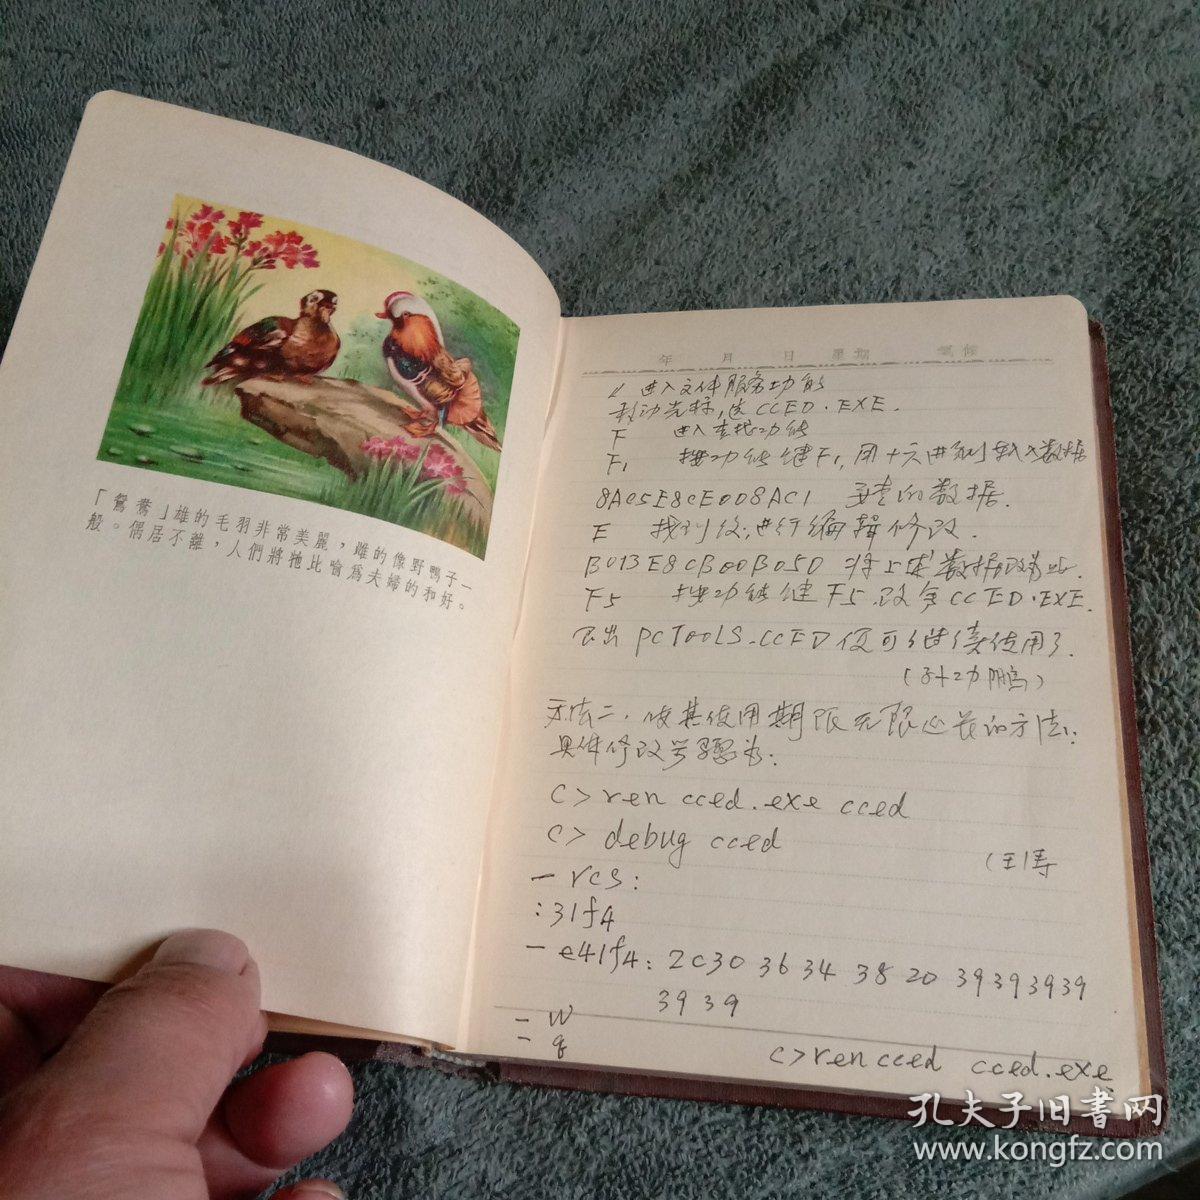 「鴛鴦」雄的毛羽非常美麗，雌的像野鴨子一
般。偶居不離，人們將牠比喻爲夫婦的和好。
年 月 日 星期 氣候
进入文件服务功能
移动光标，选 CCED.EXE.
F 进入查找功能
F1 按功能键F1，用十六进制输入数据
8A05E8CE008AC1 要查的数据.
E 找到后,进行编辑修改.
B013E8CB00B050 将上述数据改为此.
F5 按功能键F5.改写CCED.EXE.
退出PCTOOLS.CCED便可继续使用了.
方法二,使其使用期限无限延长的方法:
具体修改步骤为:
c>ren cced.exe cced
c> debug cced
- rcs:
:31f4
- e41f4: 2C30 36 34 38 20 39393939
39 39
- w
- q
c>ren cced cced.exe
孔夫子旧書网
www.kongfz.com